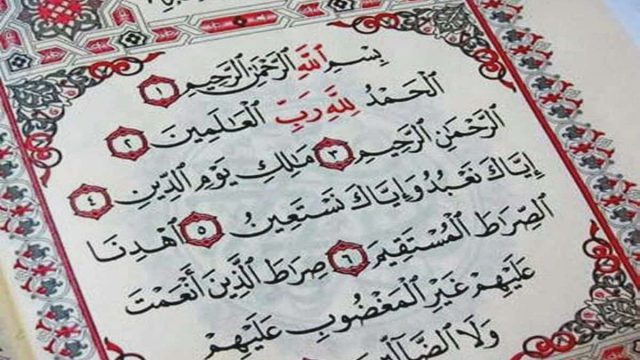 بِسْمِ ٱللَّهِ ٱلرَّحْمَٰنِ ٱلرَّحِيمِ ١
ٱلْحَمْدُ لِلَّهِ رَبِّ ٱلْعَٰلَمِينَ ٢
ٱلرَّحْمَٰنِ ٱلرَّحِيمِ ٣ مَٰلِكِ يَوْمِ ٱلدِّينِ ٤
إِيَّاكَ نَعْبُدُ وَإِيَّاكَ نَسْتَعِينُ ٥ ٱهْدِنَا
ٱلصِّرَٰطَ ٱلْمُسْتَقِيمَ ٦ صِرَٰطَ ٱلَّذِينَ أَنْعَمْتَ
عَلَيْهِمْ غَيْرِ ٱلْمَغْضُوبِ عَلَيْهِمْ
وَلَا ٱلضَّآلِّينَ